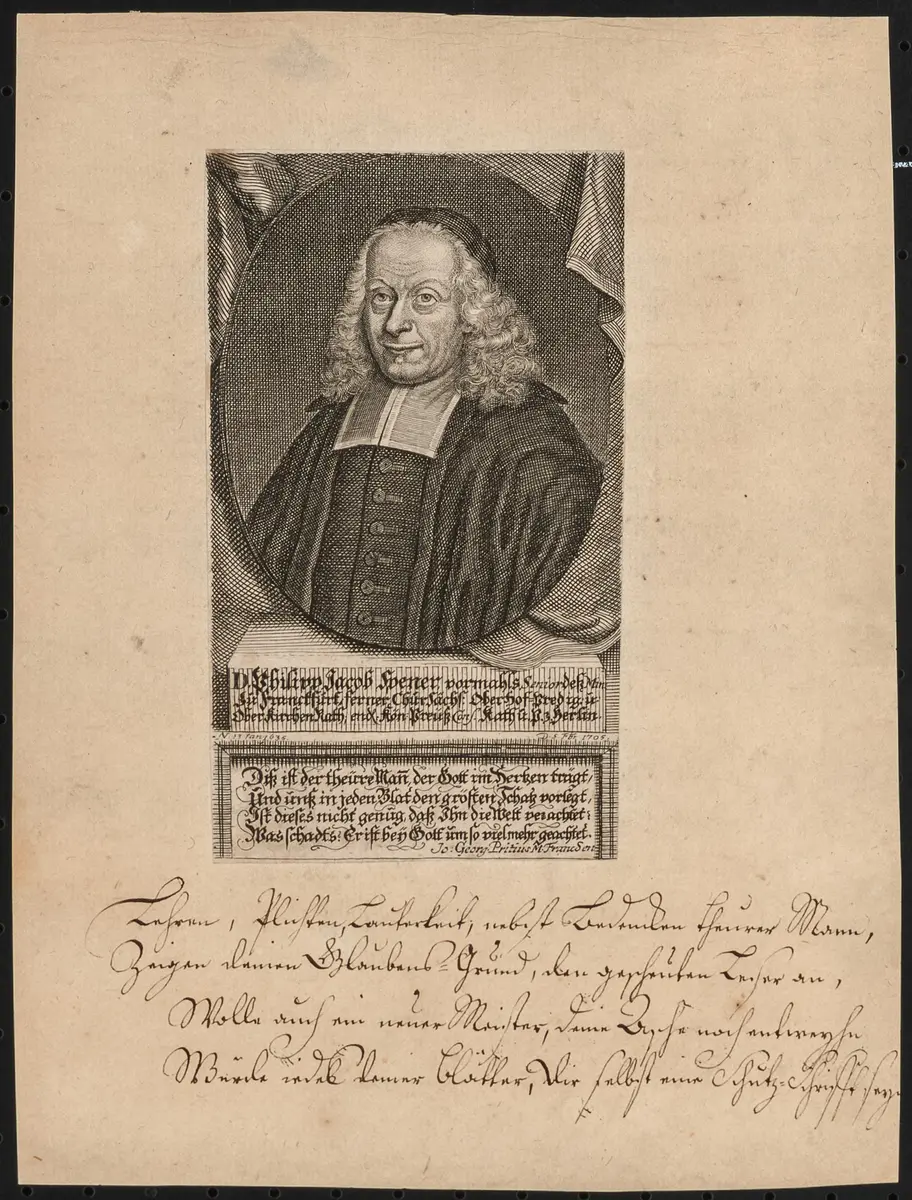 D. Philipp Jacob Spener vormahls Senior deß Min
Zu Franckfürt, ferner Chür Sächs. Ober Hof-Predig. u
Ober Kirchen Rath, endl. Kön. Preüß. Cons. Rath u. P. z Berlin.
N. 13 Jan 1635 D. 5. FEb. 1705.
Diß ist der theüre Mañ, der Gott im Hertzen trägt,
Und ünß in jeden Blat den grösten Schatz vorlegt,
Ist dieses nicht genug, daß Ihn die Welt verachtet:
Was schadts: Er ist beÿ Gott üm so viel mehr geachtet.
Jo: Georg Pritius M. Francson
Lehren, Plichten, Lauterkeit, nebst Bedencken theurer Mann,
Zeigen deinen Glaubens-Grund, den gescheuten Leser an,
Wolle auch ein neuer Meister, deine Asche noch entweyhn
Würde iedes deiner blätter, Dir selbst eine Schutz-Schrifft seyn